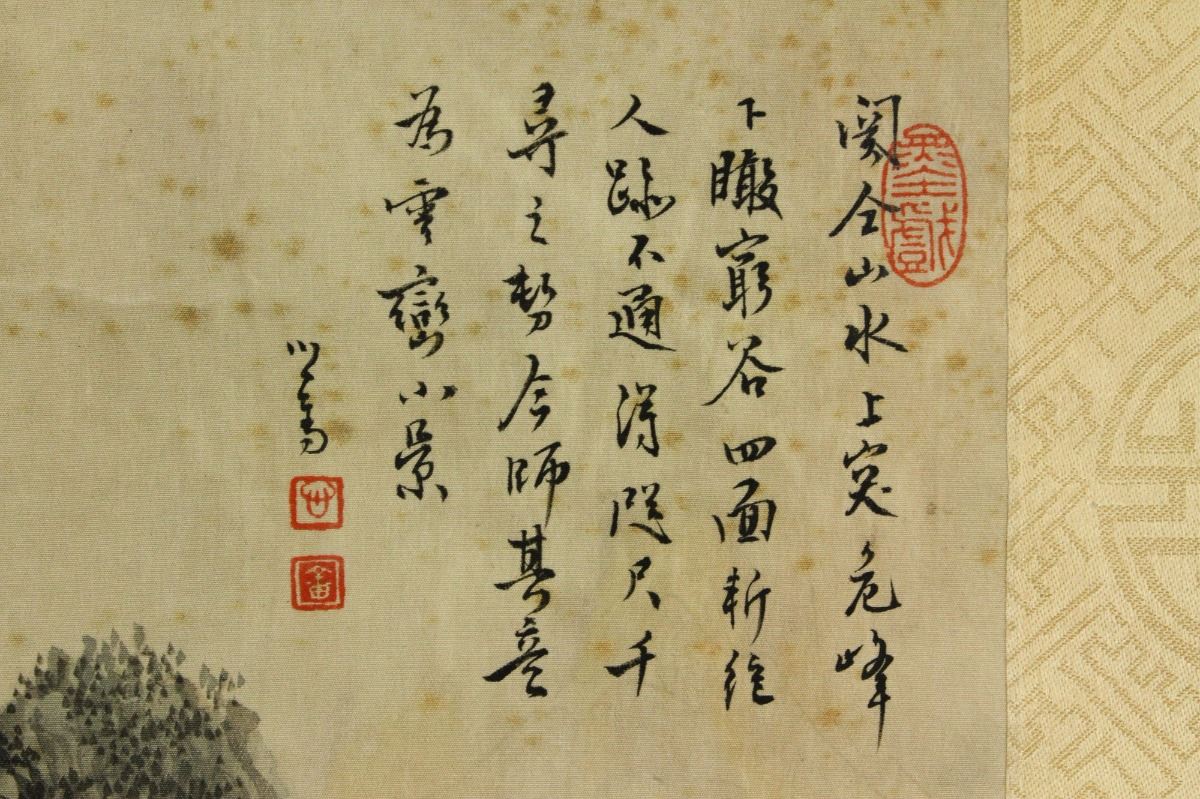 墨戲
關仝山水上突危峰
下瞰窮谷四面斬絕
人跡不通得咫尺千
尋之勢今師其意
為雲巒小景
心畬
心
畬